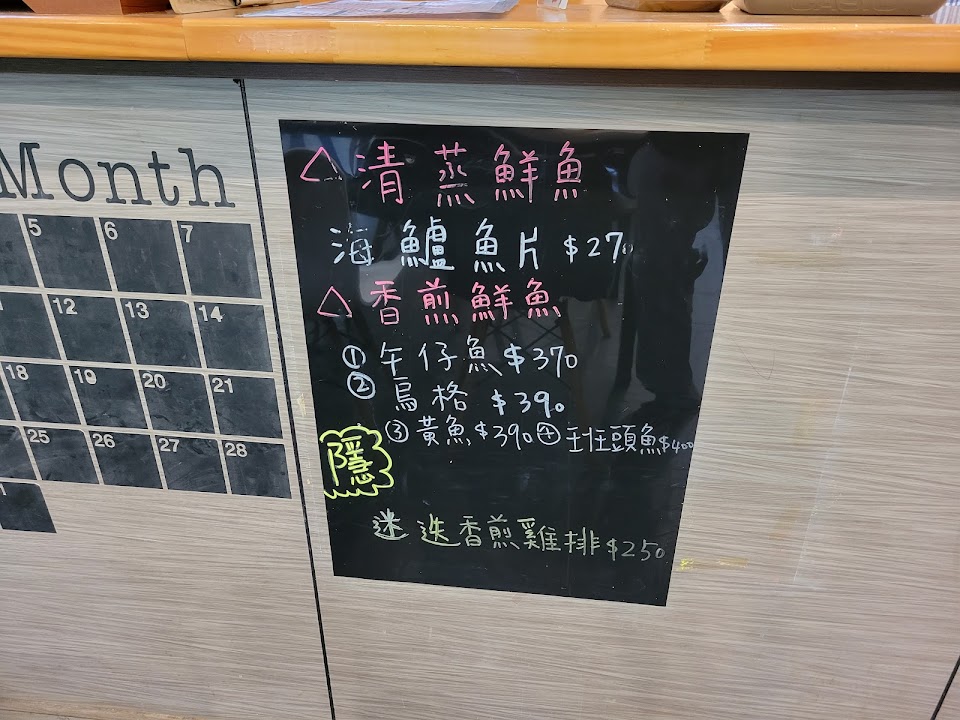 Month
5 6 7
12 13 14
18 19 20 21
25 26 27 28
△清蒸鮮魚
海鱸魚片 $270
△香煎鮮魚
①午仔魚$370
②烏格 $390
③黃魚$390④ 頭魚$400
隱
迷迭香煎雞排$250
CASIO